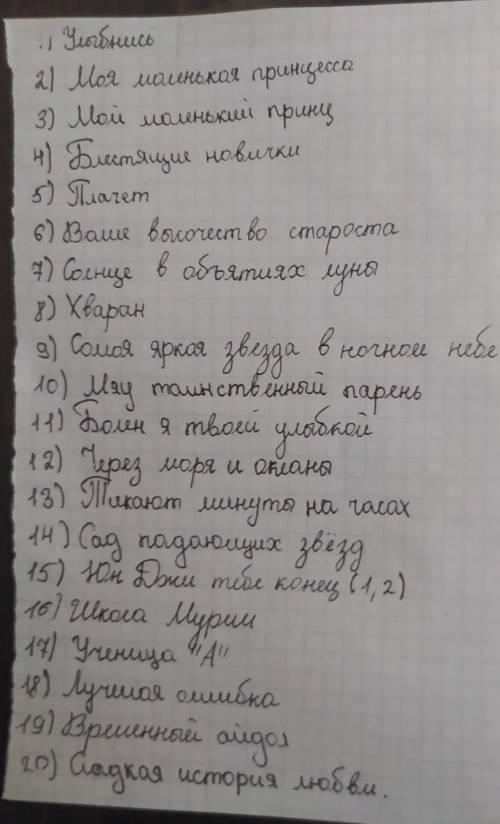 1) Улыбнись
2) Моя маленькая принцесса
3) Мой маленький принц
4) Блестящие новички
5) Плачет
6) Ваше высочество староста
7) Солнце в объятиях луны
8) Хваран
9) Самая яркая звезда в ночном небе
10) Мяу таинственный парень
11) Болен я твоей улыбкой
12) Через моря и океаны
13) Тикают минуты на часах
14) Сад падающих звёзд
15) Юн Джи тебе конец (1,2)
16) Школа Мурим
17) Ученица "А"
18) Лучшая ошибка
19) Временный айдол
20) Сладкая история любви.